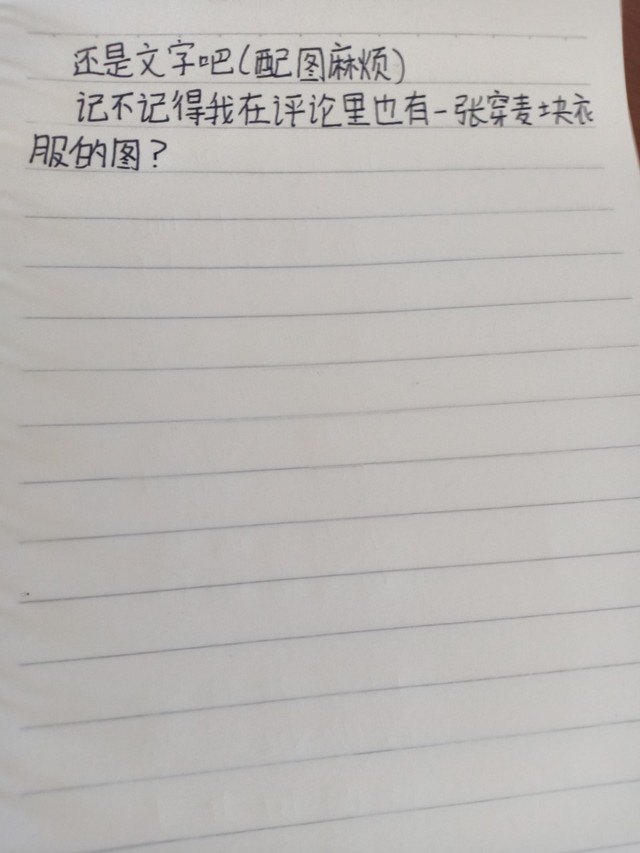 还是文字吧(配图麻烦)
记不记得我在评论里也有一张穿麦块衣
服的图?